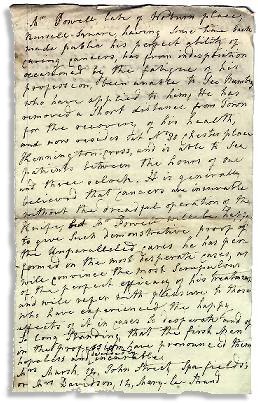 Mr Powell late of Hoburn place,
Russell-Square, having some time back
made public his perfect ability of
curing cancers, has from indisposition
occasioned by the fatigue of his
profession, been unable to see Number
who have applied to him, He has
removed a Short distance from Town
for the recovery of his health,
and now resides at No 90 chester place
Kennington-cross, and is able to See
patients between the hours of one
and three oclock. It is generally
believed that cancers are incurable
without the dreadful operation of the
Knife, but Mr Powell will be happy
to give Such demonstrative proof of
the Unparalleled cures he has per
formed in the most desperate cases, as
will convince the most Scrupulous
of the perfect efficacy of his treatment
and will refer with pleasure to those
who have experienced the happy
effects of it in cases so desperate and of
So long Standing that the first Men
in the profession have pronounced them
hopeless and incurable.
Mrs Marsh, 29, John Street, Spafields
or Mrs Davidson, 12, Mary-le Strand